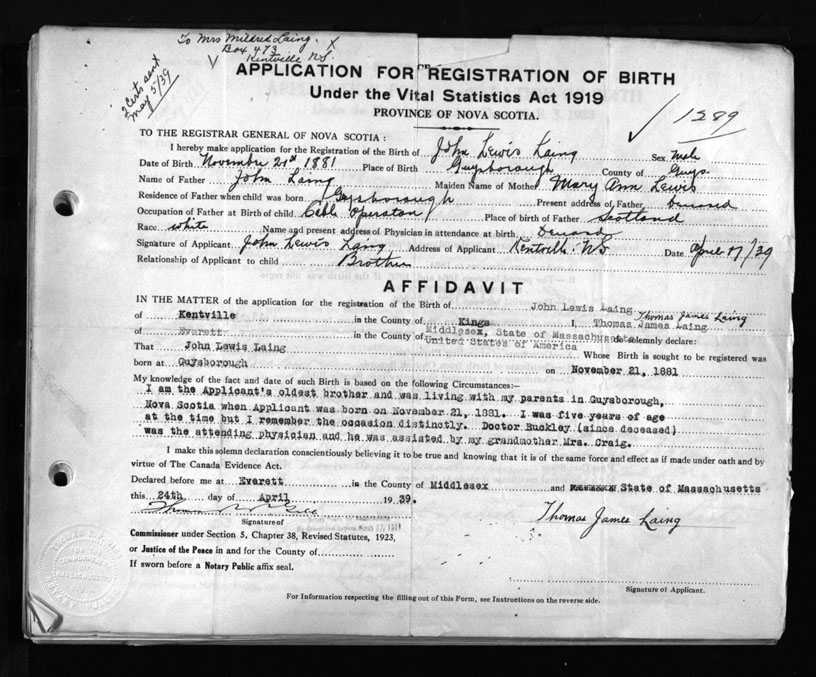 To Mrs Mildred Laing. X
Box 473
Kentville N.S.
2 Certs sent
May 5/39
APPLICATION FOR REGISTRATION OF BIRTH
Under the Vital Statistics Act 1919
PROVINCE OF NOVA SCOTIA.
1289
TO THE REGISTRAR GENERAL OF NOVA SCOTIA:
I hereby make application for the Registration of the Birth of John Lewis Laing Sex Male
Date of Birth November 21st 1881 Place of Birth Guysborough County of Guys
Name of Father John Laing Maiden Name of Mother Mary Ann Lewis
Residence of Father when child was born Guysborough Present address of Father Deceased
Occupation of Father at Birth of child Cable Operator Place of birth of Father Scotland
Race white Name and present address of Physician in attendance at birth Deceased
Signature of Applicant John Lewis Laing Address of Applicant Kentville N.S. Date April 17/39
Relationship of Applicant to child Brother
AFFIDAVIT
IN THE MATTER of the application for the registration of the Birth of John Lewis Laing
of Kentville in the County of Kings I, Thomas James Laing Thomas James Laing
of Everett in the County of Middlesex, State of Massachusetts do solemnly declare:
United States of America
That John Lewis Laing Whose Birth is sought to be registered was
born at Guysborough on November 21, 1881
My knowledge of the fact and date of such Birth is based on the following Circumstances:—
I am the Applicant's oldest brother and was living with my parents in Guysborough,
Nova Scotia when Applicant was born on November 21, 1881. I was five years of age
at the time but I remember the occasion distinctly. Doctor Buckley (since deceased)
was the attending physician and he was assisted by my grandmother Mrs. Craig.
I make this solemn declaration conscientiously believing it to be true and knowing that it is of the same force and effect as if made under oath and by
virtue of The Canada Evidence Act.
Declared before me at Everett in the County of Middlesex and State of Massachusetts
this 24th day of April 1939.
Thomas James Laing
Signature of
Commissioner under Section 5, Chapter 38, Revised Statutes, 1923,
or Justice of the Peace in and for the County of
If sworn before a Notary Public affix seal.
Signature of Applicant.
For Information respecting the filling out of this Form, see Instructions on the reverse side.